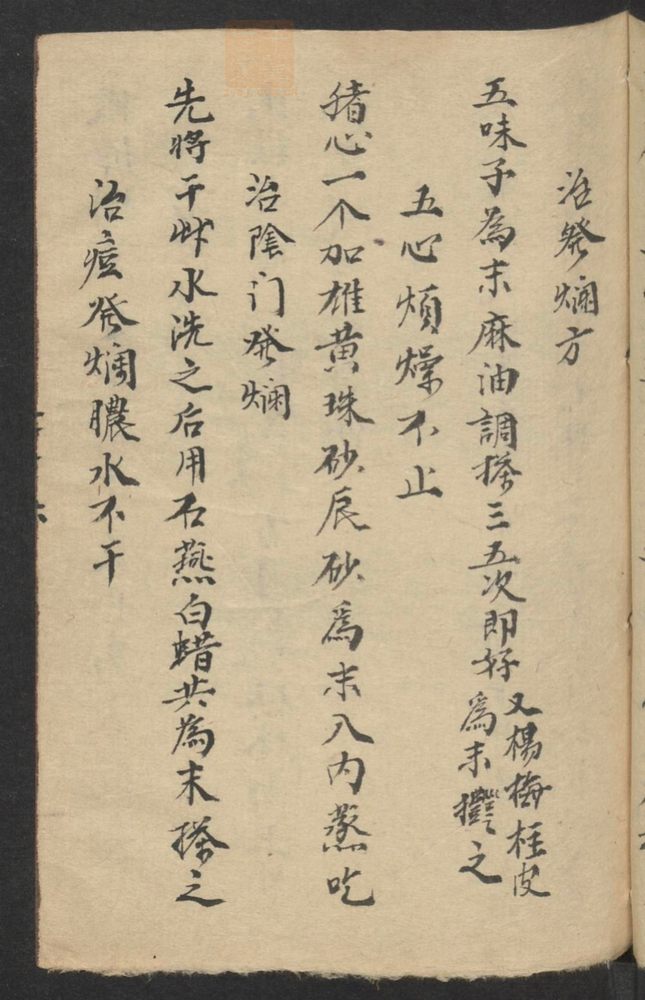 治發爛方
五味子為末麻油調搽三五次即好又楊梅桂皮
為末之
五心煩燥不止
猪心一个加雄黄珠砂辰砂為末入内蒸吃
治陰门發爛
先将干艸水洗之后用石燕白蜡共為末搽之
治痘發爛膿水不干